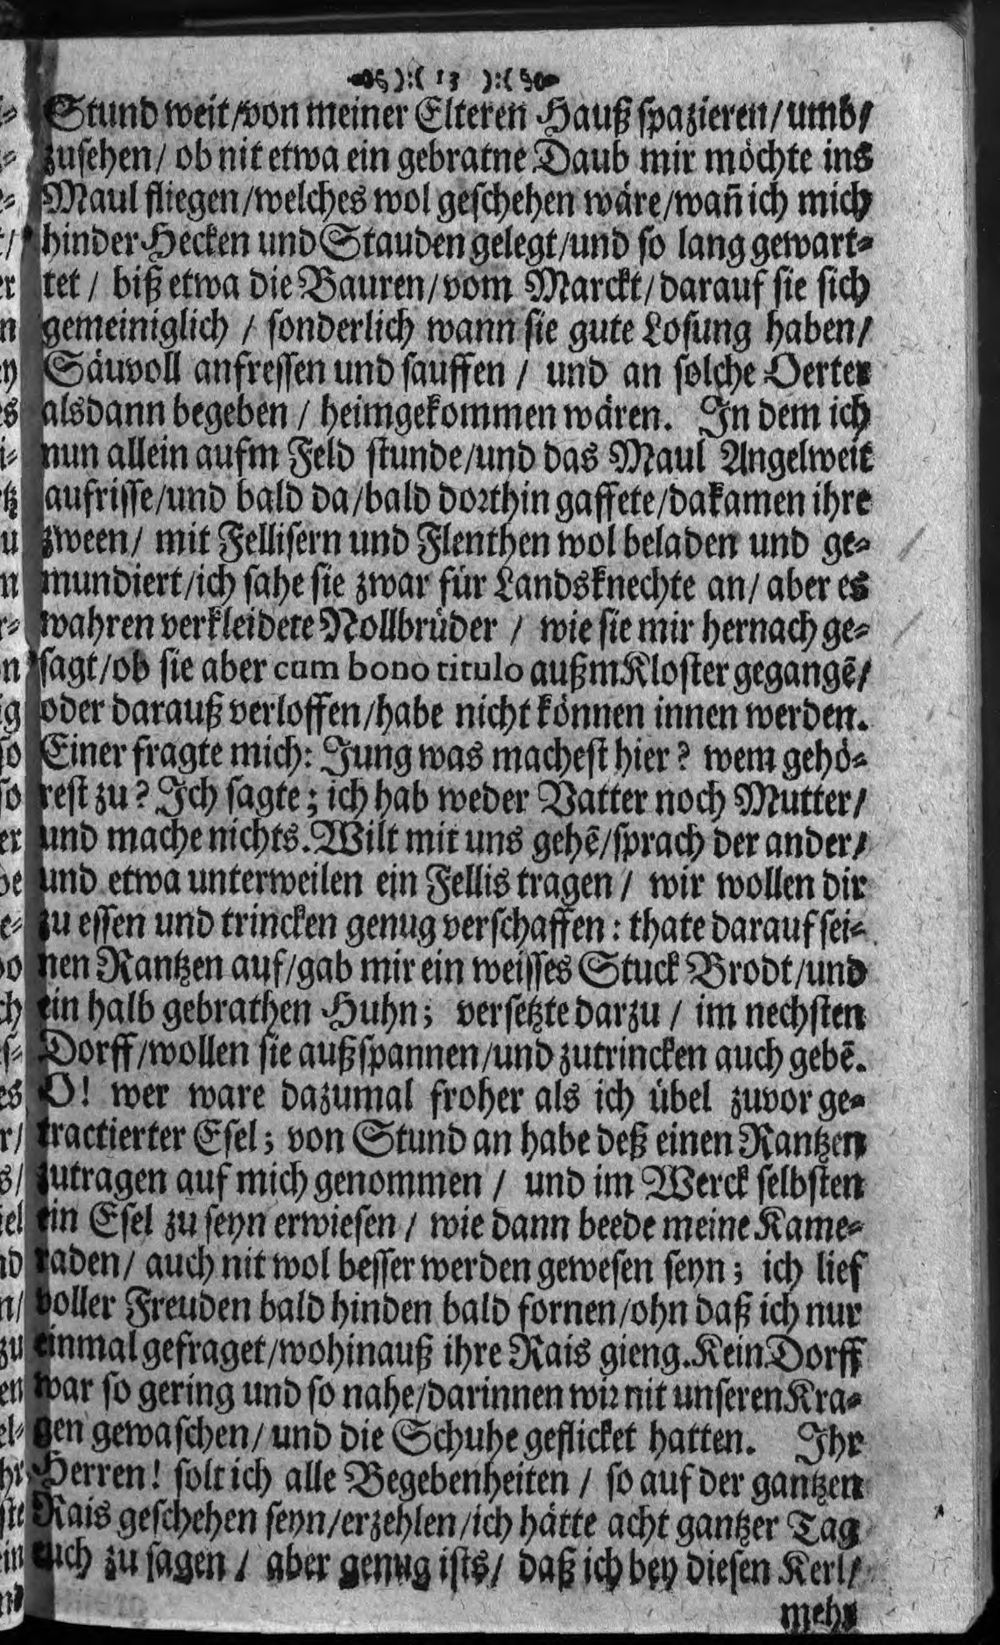 ):( 13 ):(
Stund weit/von meiner Elteren Hauß spazieren/umb/
zusehen/ ob nit etwa ein gebratne Daub mir möchte ins
Maul fliegen/welches wol geschehen wäre/wañ ich mich
hinder Hecken und Stauden gelegt/und so lang gewart-
tet / biß etwa die Bauren/vom Marckt/darauf sie sich
gemeiniglich / sonderlich wann sie gute Losung haben/
Säuvoll anfressen und sauffen / und an solche Oerter
alsdann begeben / heimgekommen wären. In dem ich
nun allein aufm Feld stunde/und das Maul Angelweit
aufrisse/und bald da/bald dorthin gaffete/da kamen ihre
zween/ mit Fellisern und Flenthen wol beladen und ge-
mundiert/ich sahe sie zwar für Landsknechte an/ aber es
wahren verkleidete Nollbrüder / wie sie mir hernach ge-
sagt/ob sie aber cum bono titulo außm Kloster gegangē/
oder darauß verloffen/habe nicht können innen werden.
Einer fragte mich: Jung was machest hier? wem gehö-
rest zu? Ich sagte; ich hab weder Vatter noch Mutter/
und mache nichts. Wilt mit uns gehē/sprach der ander/
und etwa unterweilen ein Fellis tragen / wir wollen dir
zu essen und trincken genug verschaffen: thate darauf sei-
nen Rantzen auf/gab mir ein weisses Stuck Brodt/und
ein halb gebrathen Huhn; versetzte darzu / im nechsten
Dorff/wollen sie außspannen/und zutrincken auch gebē.
O! wer ware dazumal froher als ich übel zuvor ge-
tractierter Esel; von Stund an habe deß einen Rantzen
zutragen auf mich genommen / und im Werck selbsten
ein Esel zu seyn erwiesen / wie dann beede meine Kame-
raden/ auch nit wol besser werden gewesen seyn; ich lief
voller Freuden bald hinden bald fornen/ohn daß ich nur
einmal gefraget/wohinauß ihre Rais gieng. Kein Dorff
war so gering und so nahe/darinnen wir nit unseren Kra-
gen gewaschen/ und die Schuhe geflicket hatten. Ihr
Herren! solt ich alle Begebenheiten / so auf der gantzen
Rais geschehen seyn/erzehlen/ich hätte acht gantzer Tag
euch zu sagen / aber genug ists/ daß ich bey diesen Kerl/
mehr